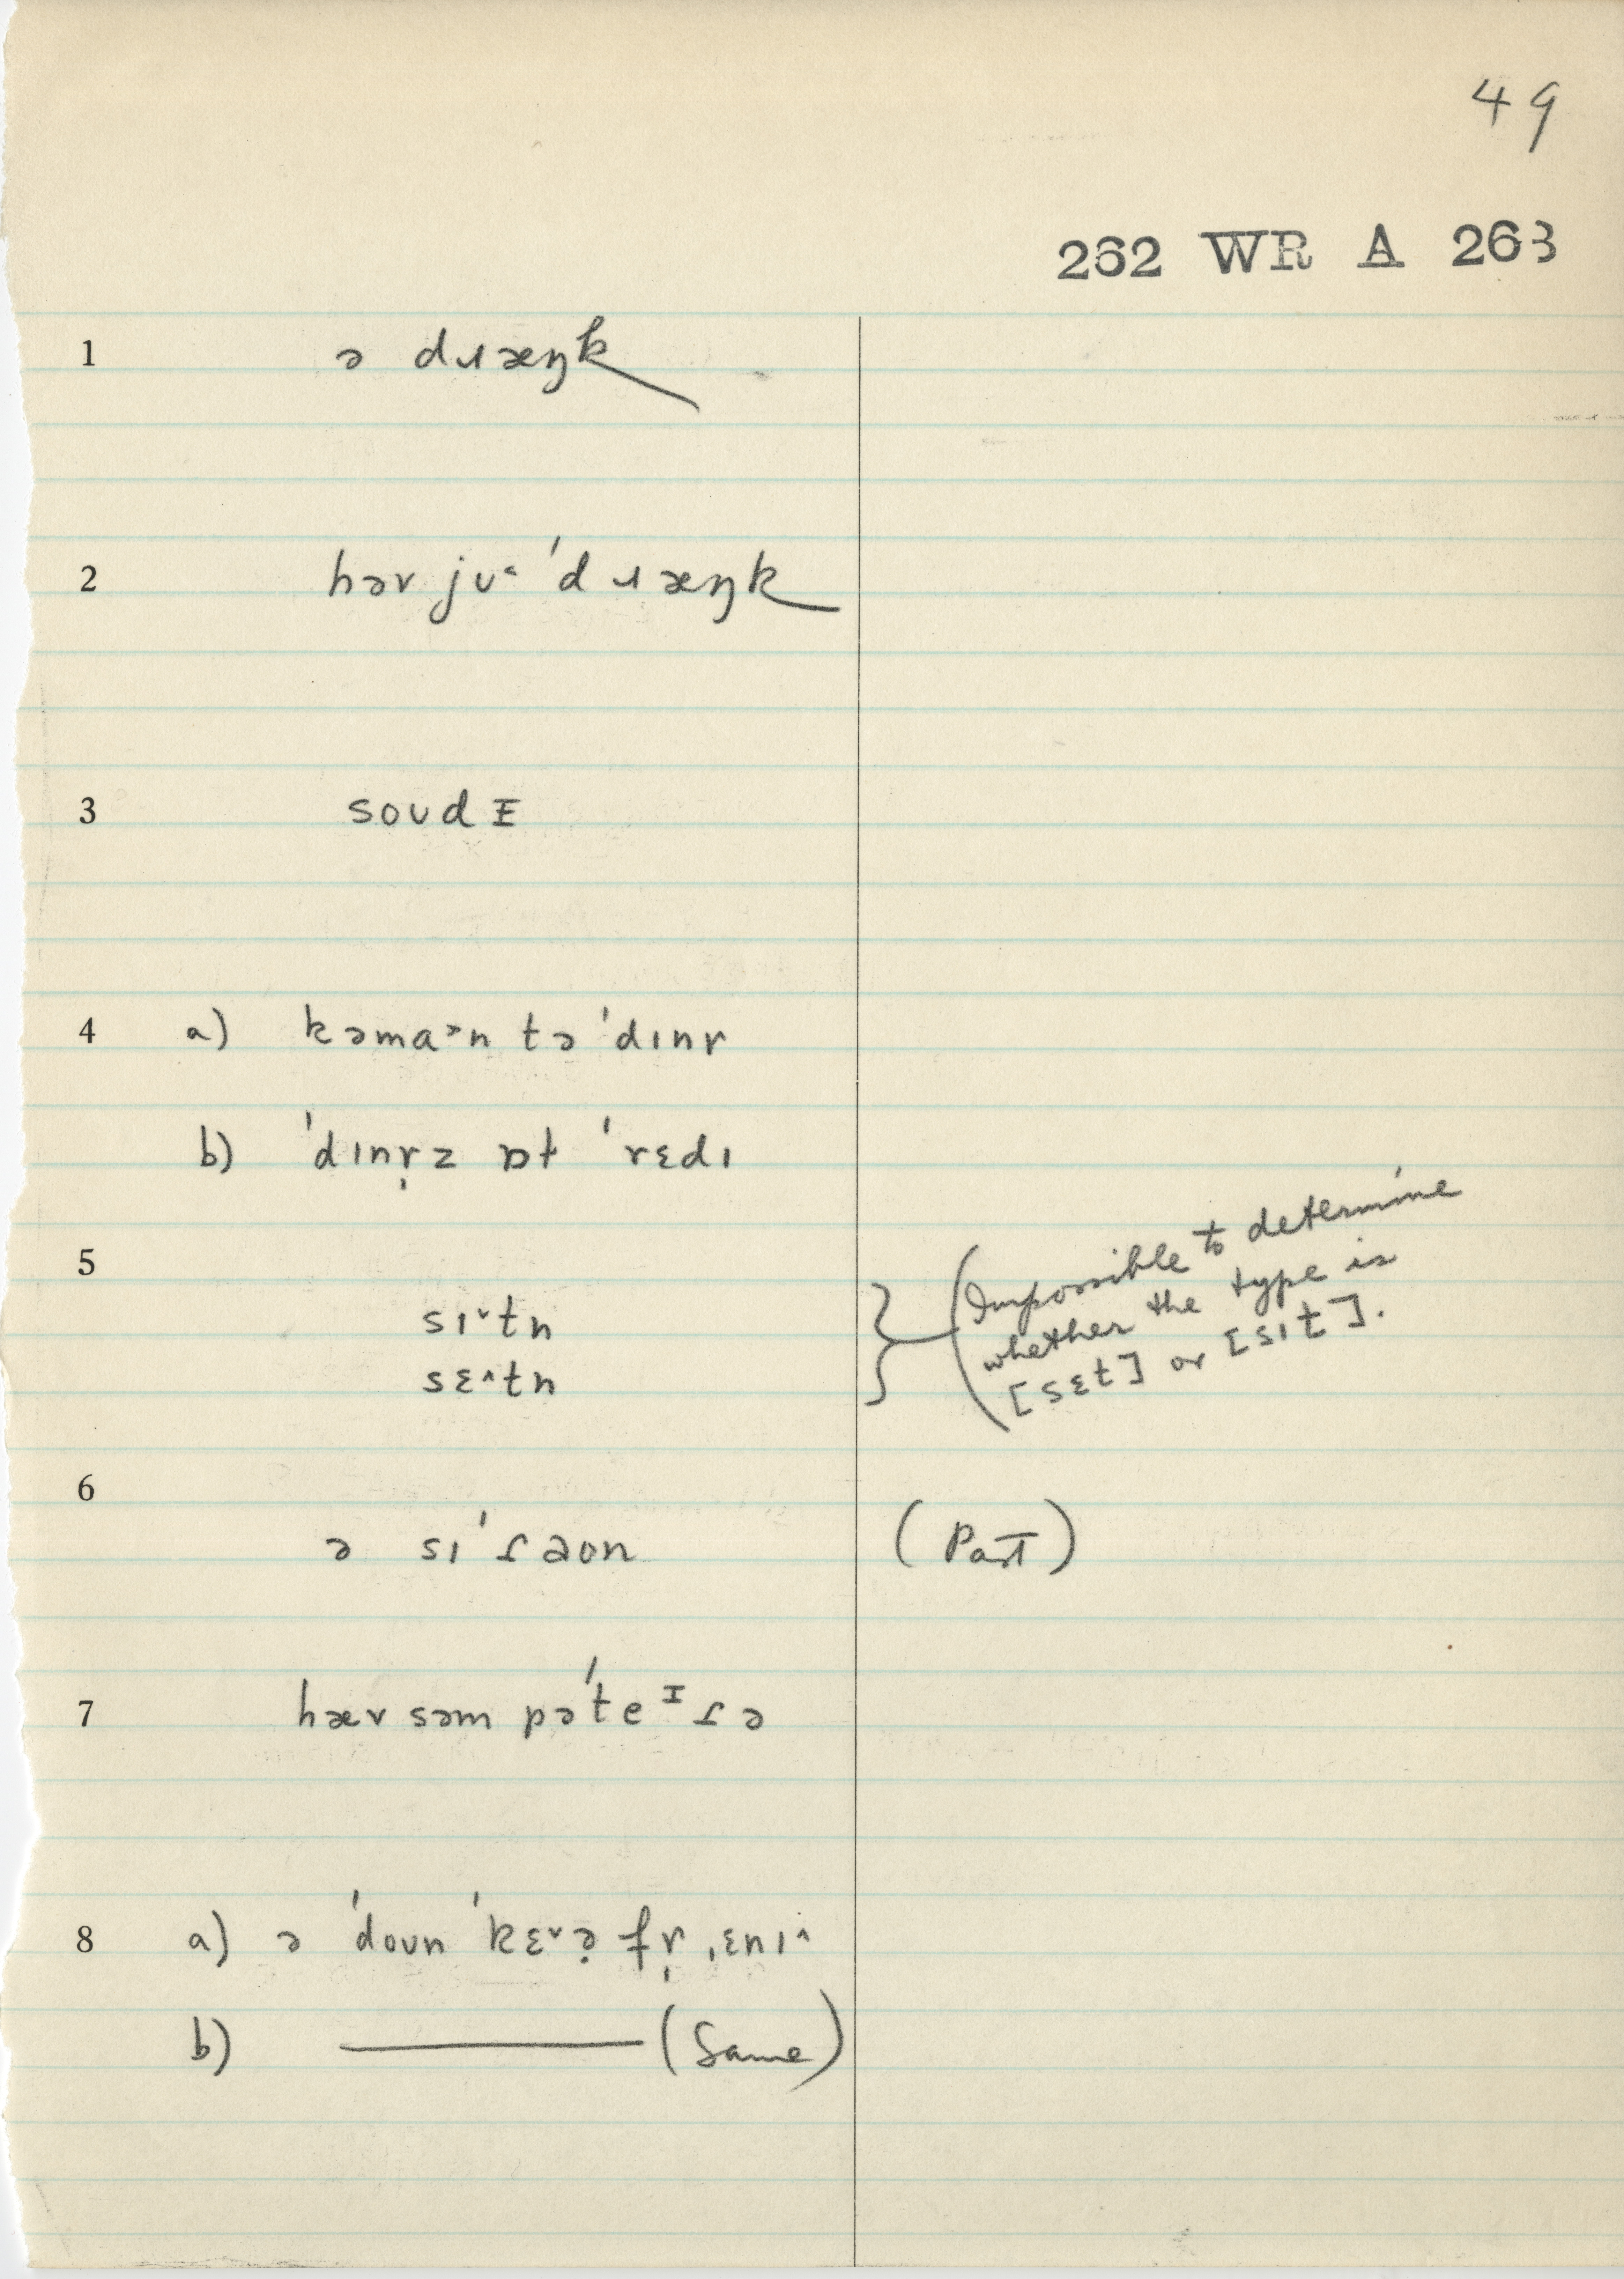 49
262 WR A 263
1 ə dɹæŋk
2 həv jʊ˂ ˈdɹæŋk
3 soʊdᵻ
4 a) kəma˃n tə ˈdɪnɚ
b) ˈdɪnɚ̩z ɒt ˈrɛdɪ
5
sɪ˅tn
sɛ˄tn
} (Impossible to determine
whether the type is
[sɛt] or [sɪt].
6
ə sɪˈɾaʊn (Past)
7 hæv səm pəˈteᵻɾə
8 a) ə ˈdoʊn ˈkɛ˅ə̣ fɚ̩ ˌɛnɪ˄
b) ——— (Same)